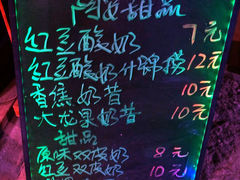 甜品
红豆酸奶 7元
红豆酸奶什锦捞 12元
香蕉奶昔 10元
火龙果奶昔 10元
甜品
原味双皮奶 8元
红豆双皮奶 10元